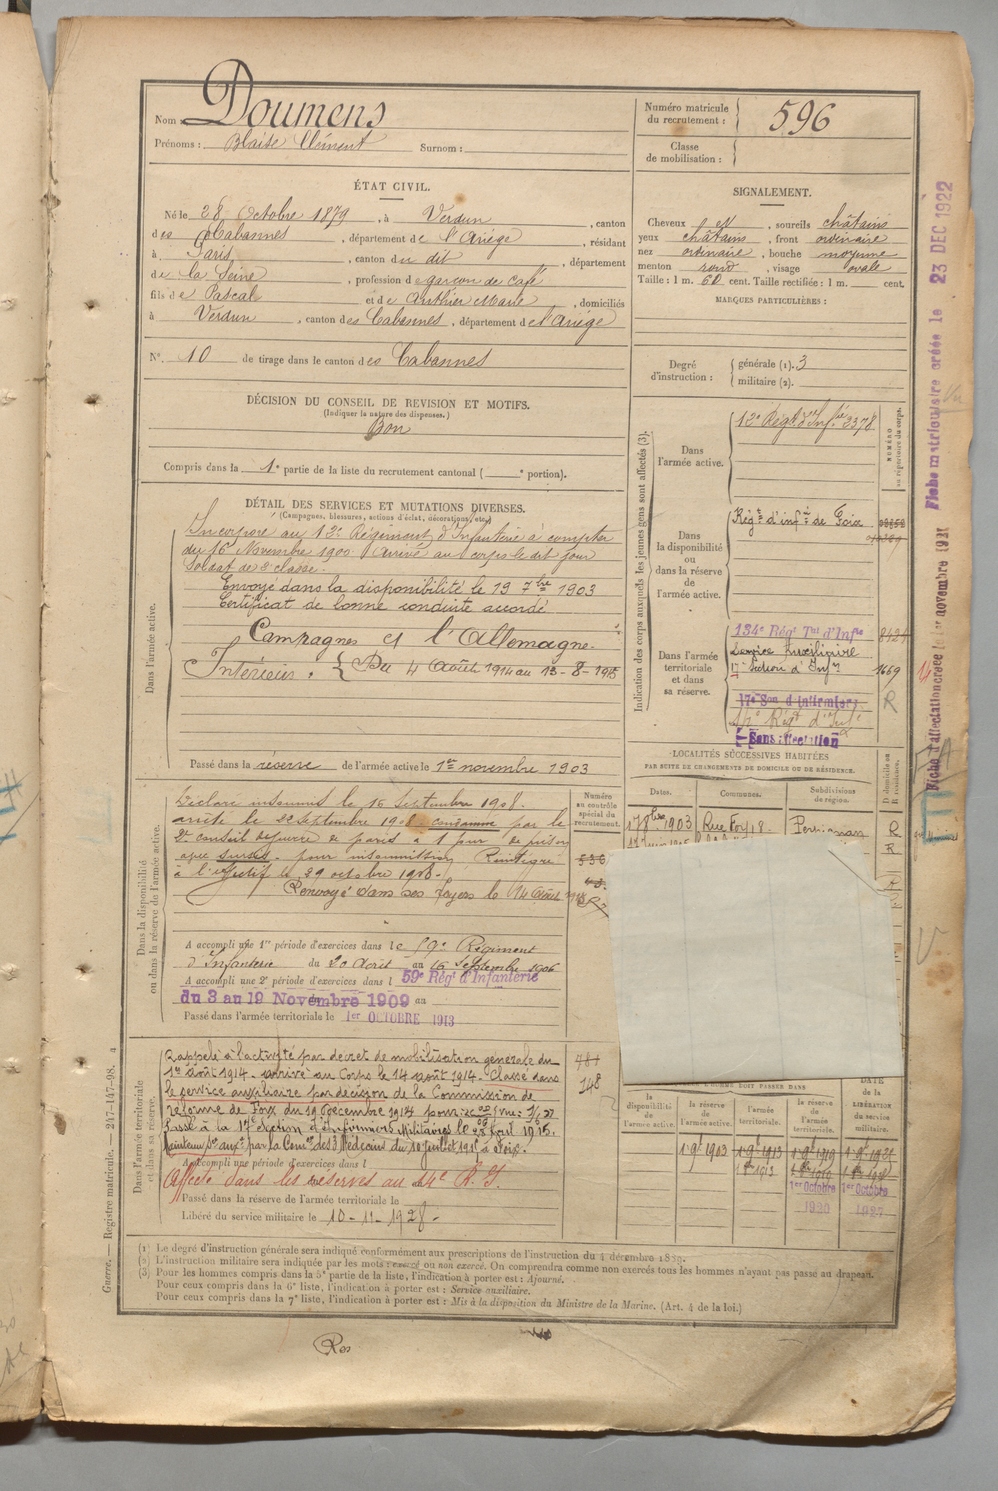 Nom : Doumens
Prénoms : Blaise Clément Surnom :
Numéro matricule du recrutement : 596
Classe de mobilisation :
ÉTAT CIVIL.
Né le 28 Octobre 1879, à Verdun, canton
des Cabannes, département de l'Ariège, résidant
à Paris, canton du dit, département
de la Seine, profession de garçon de café
fils de Pascal et de Authier Marie, domiciliés
à Verdun, canton des Cabannes, département de l'Ariège
N°. 10 de tirage dans le canton des Cabannes
DÉCISION DU CONSEIL DE REVISION ET MOTIFS.
(Indiquer la nature des dispenses.)
Bon
Compris dans la 1e partie de la liste du recrutement cantonal ( e portion).
SIGNALEMENT.
Cheveux et, sourcils châtains
yeux châtains, front ordinaire
nez ordinaire, bouche moyenne
menton rond, visage ovale
Taille : 1 m. 60 cent. Taille rectifiée : 1 m. cent.
MARQUES PARTICULIÈRES :
Degré d'instruction : générale (1). 3
militaire (2).
DÉTAIL DES SERVICES ET MUTATIONS DIVERSES.
(Campagnes, blessures, actions d'éclat, décorations, etc.)
Dans l'armée active.
Incorporé au 12e Régiment d'Infanterie à compter
du 16 Novembre 1900. Arrivé au corps le dit jour
Soldat de 2e classe.
Envoyé dans la disponibilité le 19 7bre 1903
Certificat de bonne conduite accordé
Campagnes et l'Allemagne.
Intérieur : { Du 4 Août 1914 au 13-8-1915
Passé dans la réserve de l'armée active le 1er novembre 1903
Indication des corps auxquels les jeunes gens sont affectés (3).
NUMÉRO au répertoire du corps.
Dans l'armée active.
12e Régt d'Infie 2378
Dans la disponibilité ou dans la réserve de l'armée active.
Régt d'infie de Foix
Dans l'armée territoriale et dans sa réserve.
134e Régt Tal d'Infie
Service Auxiliaire
17e Section d'Infrs 1669
17e Son d'Infirmiers R
Sans affectation
LOCALITÉS SUCCESSIVES HABITÉES
PAR SUITE DE CHANGEMENTS DE DOMICILE OU DE RÉSIDENCE.
Dates. Communes. Subdivisions de région. D domicile ou R résidence.
17 8bre 1903 Rue Foy 18. Perpignan R
R
Dans la disponibilité ou dans la réserve de l'armée active.
Numéro au contrôle spécial du recrutement.
Déclaré insoumis le 16 Septembre 1908.
arrêté le 22 Septembre 1908 condamné par le
2e conseil de guerre de paris à 1 jour de prison
avec sursis pour insoumission Réintégré
à l'effectif le 29 octobre 1908.
Renvoyé dans ses foyers le 14 Août
A accompli une 1re période d'exercices dans le 59e Régiment
d'Infanterie du 20 Août au 16 Septembre 1906
A accompli une 2e période d'exercices dans l 59e Régt d'Infanterie
du 3 au 19 Novembre 1909 au
Passé dans l'armée territoriale le 1er OCTOBRE 1913
Dans l'armée territoriale et dans sa réserve.
Rappelé à l'activité par décret de mobilisation générale du
1er août 1914 - arrivé au Corps le 14 août 1914. Classé dans
le service auxiliaire par décision de la Commission de
réforme de Foix du 19 Décembre 1914 pour
Passé à la 17e Section d'Infirmiers Militaires le Avril 1915.
Maintenu Sce auxre par la Comon des 3 Médecins du 10 juillet à Foix.
A accompli une période d'exercices dans l
Affecté dans les réserves au 14e R.I.
Passé dans la réserve de l'armée territoriale le
Libéré du service militaire le 10-11-1928.
148
L'HOMME DOIT PASSER DANS
la disponibilité de l'armée active. la réserve de l'armée active. l'armée territoriale. la réserve de l'armée territoriale. DATE de la LIBÉRATION du service militaire.
1er Octobre 1920
1er Octobre 1927
(1) Le degré d'instruction générale sera indiqué conformément aux prescriptions de l'instruction du 4 décembre 1889.
(2) L'instruction militaire sera indiquée par les mots : exercé ou non exercé. On comprendra comme non exercés tous les hommes n'ayant pas passé au drapeau.
(3) Pour les hommes compris dans la 5e partie de la liste, l'indication à porter est : Ajourné.
Pour ceux compris dans la 6e liste, l'indication à porter est : Service auxiliaire.
Pour ceux compris dans la 7e liste, l'indication à porter est : Mis à la disposition du Ministre de la Marine. (Art. 4 de la loi.)
Guerre. — Registre matricule. — 247-147-98.
Fiche matriculaire créée le 23 DEC 1922
Fiche d'affectation créée le 1er novembre 1921